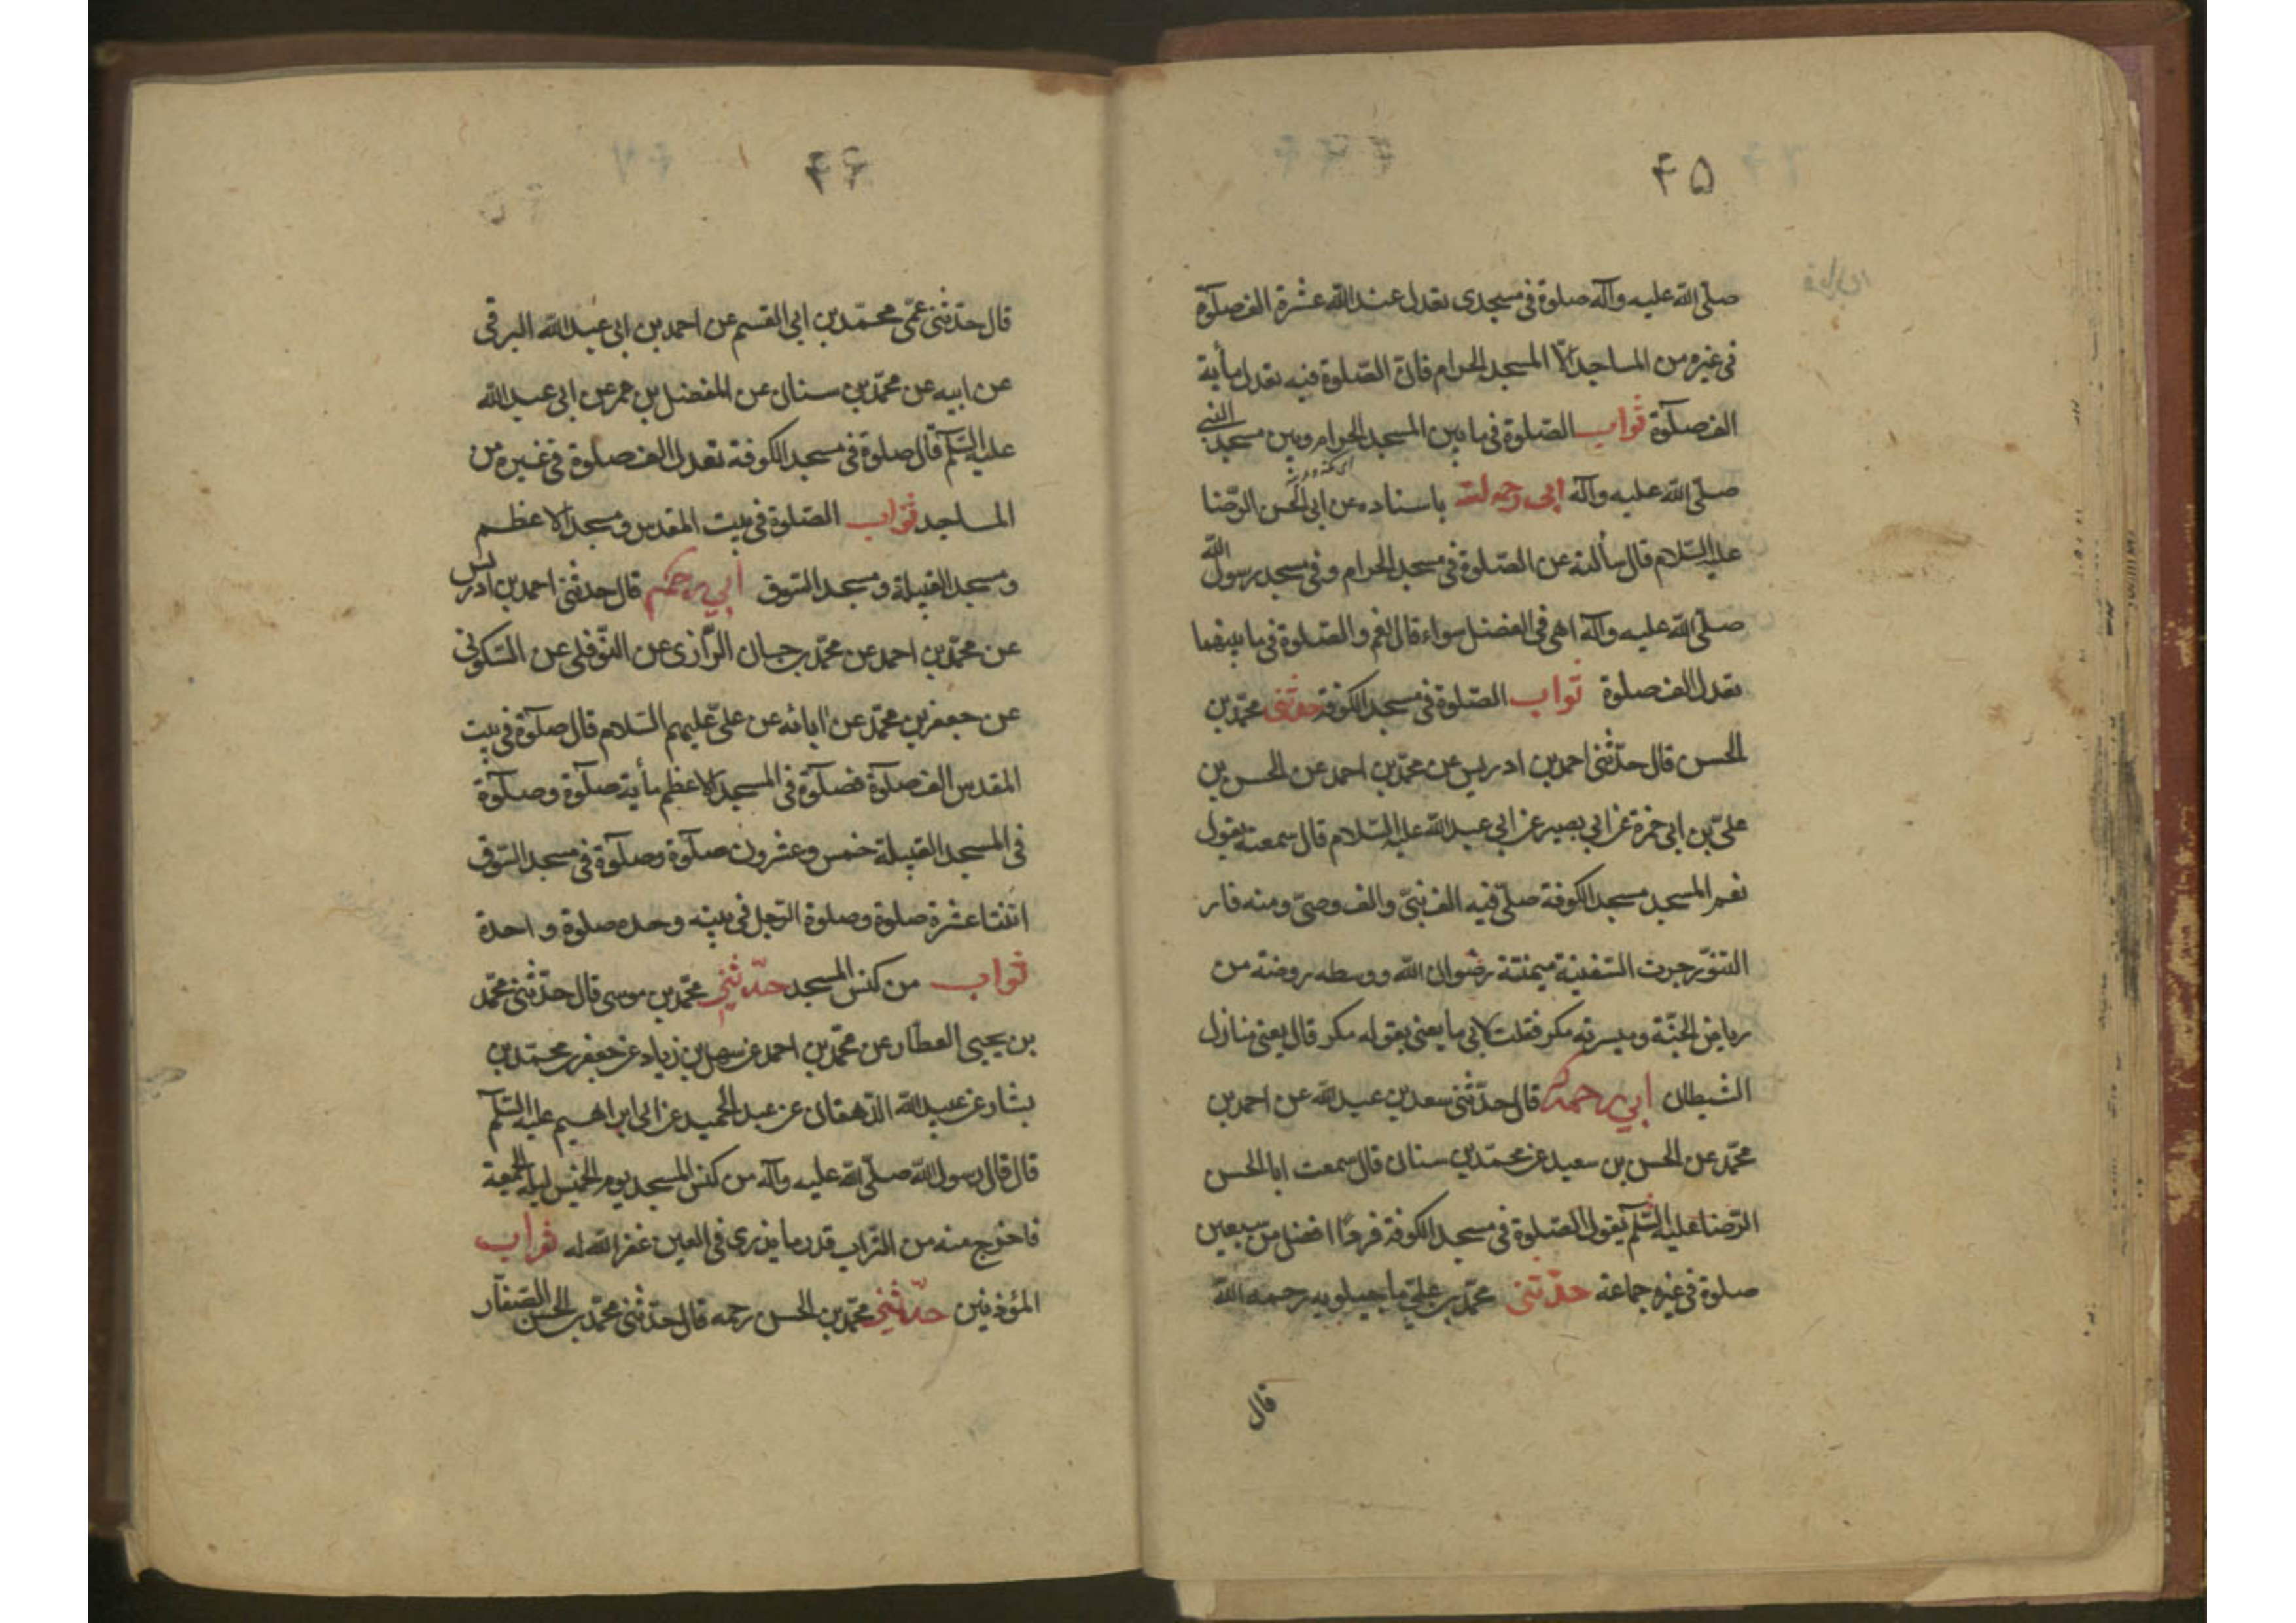 ۴۵
صلّى الله عليه وآله صلوة فى مسجدى تعدل عند الله عشرة الف صلوة
فى غيره من المساجد الّا المسجد الحرام فانّ الصّلوة فيه تعدل مأية
الف صلوة ثواب الصّلوة فى ما بين المسجد الحرام وبين مسجد النبى
صلّى الله عليه وآله ابى رحمه الله باسناده عن ابى الحسن الرّضا
عليه السّلام قال سألته عن الصّلوة فى مسجد الحرام وفى مسجد رسول الله
صلّى الله عليه وآله اهى فى الفضل سواء قال نعم والصّلوة فى ما بينهما
تعدل الف صلوة ثواب الصّلوة فى مسجد الكوفة حدّثنى محمّد بن
الحسن قال حدّثنى احمد بن ادريس عن محمّد بن احمد عن الحسن بن
علىّ بن ابى حمزة عن ابى بصير عن ابى عبد الله عليه السّلام قال سمعته يقول
نعم المسجد مسجد الكوفة صلّى فيه الف نبىّ والف وصىّ ومنه فار
التنوّر جرت السّفينة ميمنته رضوان الله ووسطه روضة من
رياض الجنّة وميسرته مكر فقلت لابى ما يعنى بقوله مكر قال يعنى منازل
الشيطان ابي رحمه قال حدّثنى سعد بن عبد الله عن احمد بن
محمّد عن الحسن بن سعيد عن محمّد بن سنان قال سمعت ابا الحسن
الرّضا عليه السّلم يقول الصّلوة فى مسجد الكوفة فردًا افضل من سبعين
صلوة فى غيره جماعة حدّثنى محمّد بن علىّ ماجيلويه رحمه الله
قال
۴۶
قال حدّثنى عمّى محمّد بن ابى القسم عن احمد بن ابى عبد الله البرقى
عن ابيه عن محمّد بن سنان عن المفضل بن عمر عن ابى عبد الله
عليه السّلم قال صلوة فى مسجد الكوفة تعدل الف صلوة فى غيره من
المساجد ثواب الصّلوة فى بيت المقدس ومسجد الاعظم
ومسجد القبيلة ومسجد السّوق أبي رحمه قال حدثنى احمد بن ادريس
عن محمّد بن احمد عن محمّد بن حسان الرّازى عن النّوفلى عن السّكونى
عن جعفر بن محمّد عن ابائه عن علىّ عليهم السّلام قال صلوة فى بيت
المقدس الف صلوة فصلوة فى المسجد الاعظم مأية صلوة وصلوة
فى المسجد القبيلة خمس وعشرون صلوة وصلوة فى مسجد السّوق
اثنتا عشرة صلوة وصلوة الرّجل فى بيته وحده صلوة واحدة
ثواب من كنس المسجد حدّثني محمّد بن موسى قال حدّثنى محمّد
بن يحيى العطّار عن محمّد بن احمد عن سهل بن زياد عن جعفر بن محمّد بن
بشار عن عبيد الله الدّهقان عن عبد الحميد عن ابى ابراهيم عليه السّلم
قال قال رسول الله صلّى الله عليه وآله من كنس المسجد يوم الخميس ليلة الجمعة
فاخرج منه من التّراب قدر ما يذرى فى العين غفر الله له ثواب
المؤذنين حدّثني محمّد بن الحسن رحمه قال حدّثنى محمّد بن الحسن الصّفّار